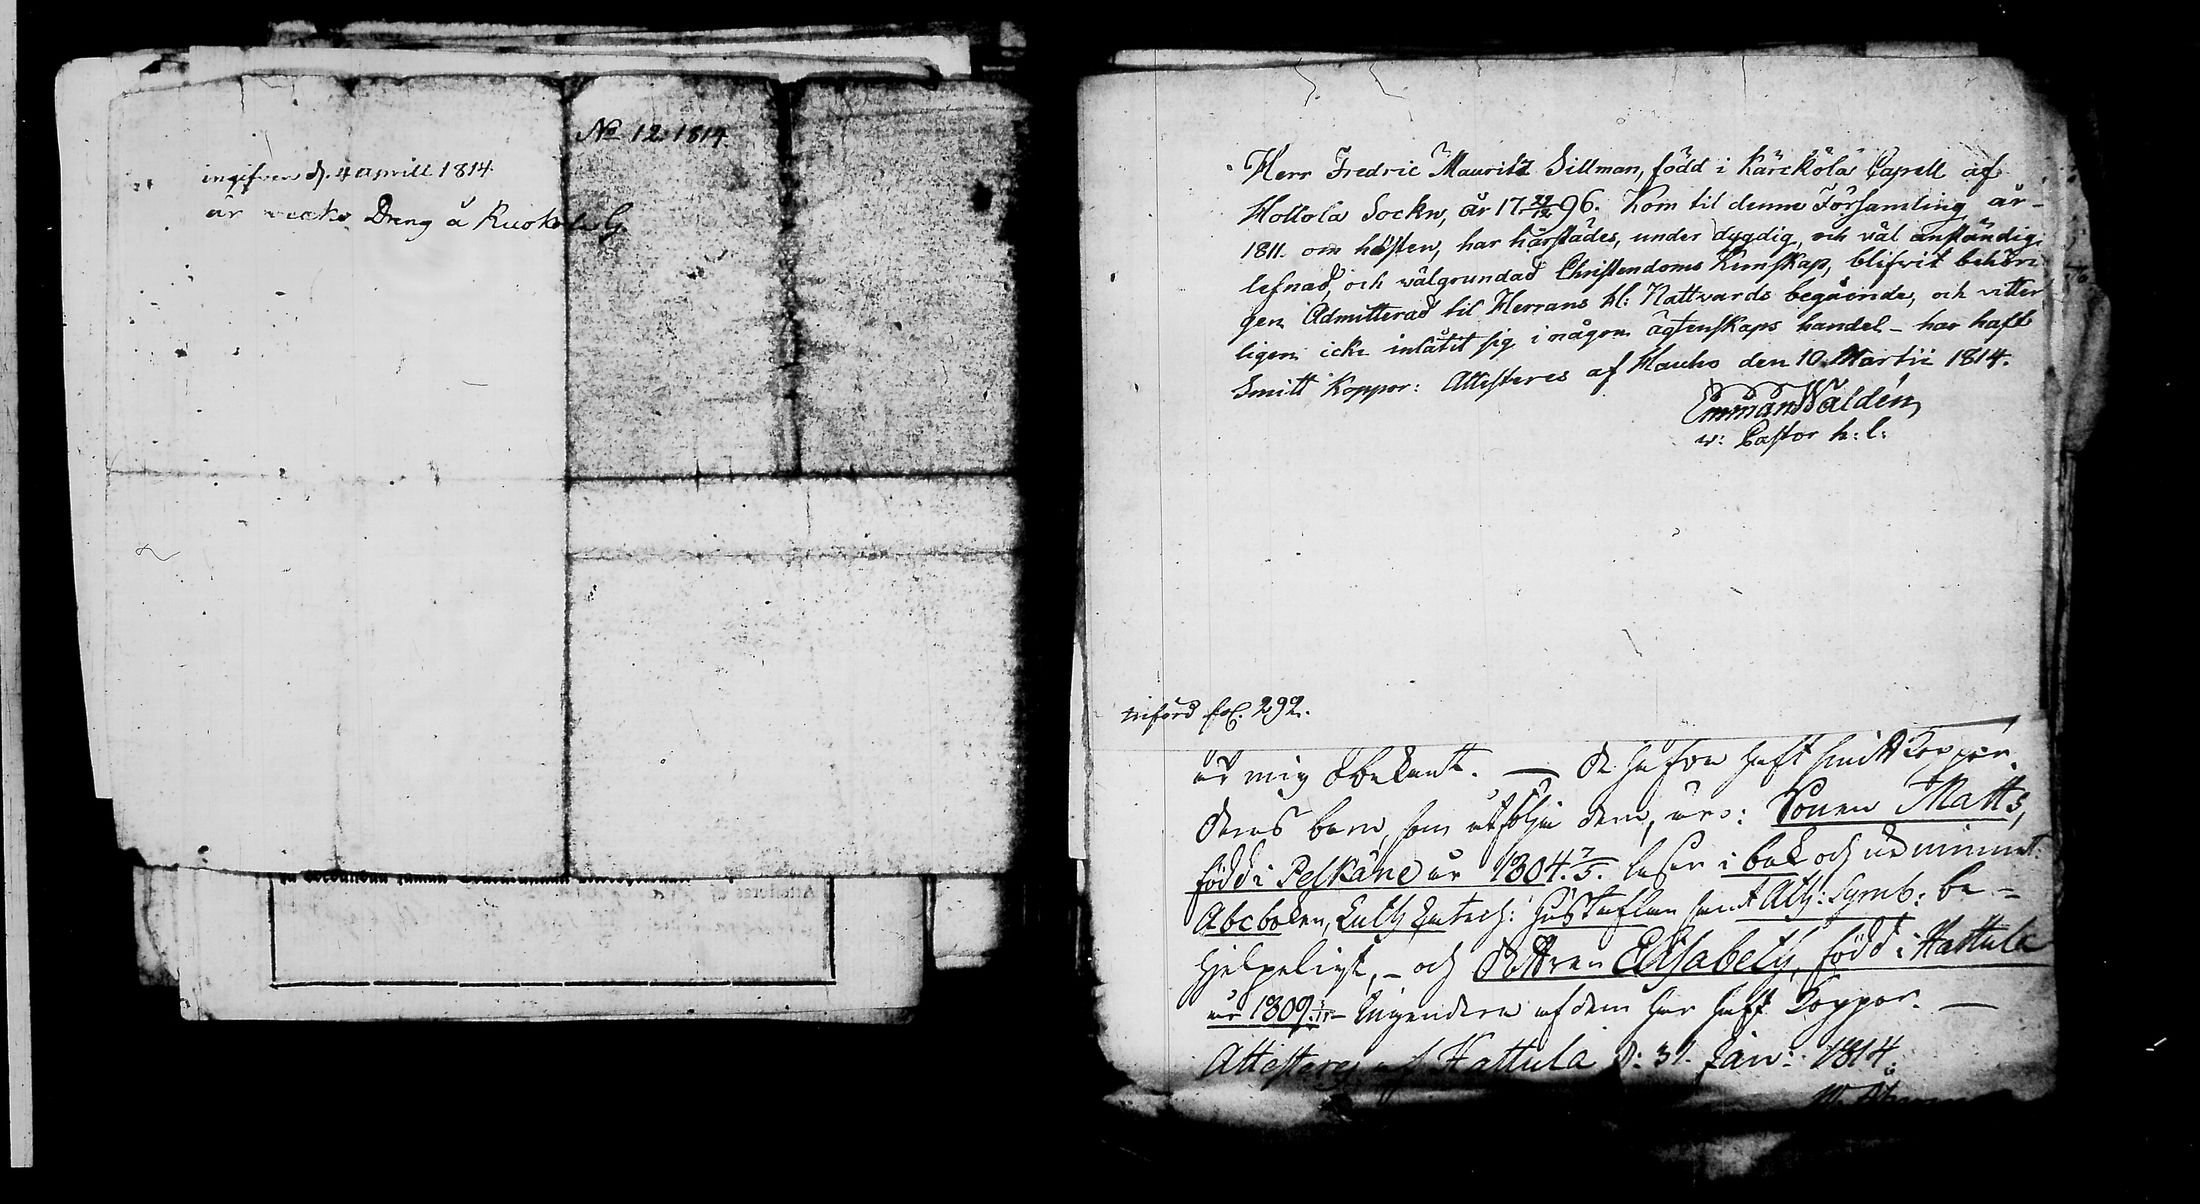 No 12. 1814.
ingifven d. 4 aprill 1814
är Dreng å Ruokola G.
Herr Fredric Mauritz Sillman, född i Kärckölä Capell af
Hollola Sockn, år 17 29/12 96. Kom til denna Församling år
1811. om hösten, har härstädes, under dygdig, och väl anständig
lefnad, och välgrundad Christendoms Kunskap, blifvit behöri-
gen Admitterad til Herrans H: Nattvards begående, och vitter
ligen icke inlåtit sig i någon ägtenskaps handel - har haft
Smitt Koppor: Attesteres af Hauho den 10 Martii 1814.
Emman Walden
v: Pastor h: l:
införd fol. 292.
är mig obekant. — De hafva haft smitt Koppor.
Deras barn, som åtfölja dem, äro: Sonen Matts,
född i Pelkäne år 1804. 7/5. läser i bok och ur minnet
Abcboken, Luth Catech: Hustaflan samt Ath: Symb: be-
hjelpeligt, - och dottren Elisabeth, född i Hattula
år 1809. - Ingendera af dem har haft Koppor. —
Attesteres af Hattula d: 31. Jan: 1814.